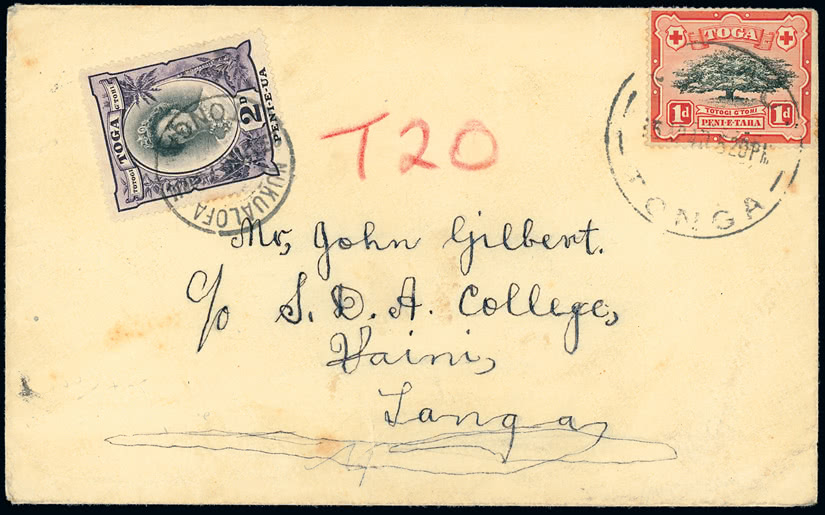 TOGA
TOTOGI O'TOHI
1d 1d
PENI-E-TAHA
TOTOGI O'TOHI
TOGA
2D
PENI-E-UA
NUKUALOFA
TONGA
T20
Mr, John Gilbert.
c/o S. D. A. College,
Vaini,
Tonga